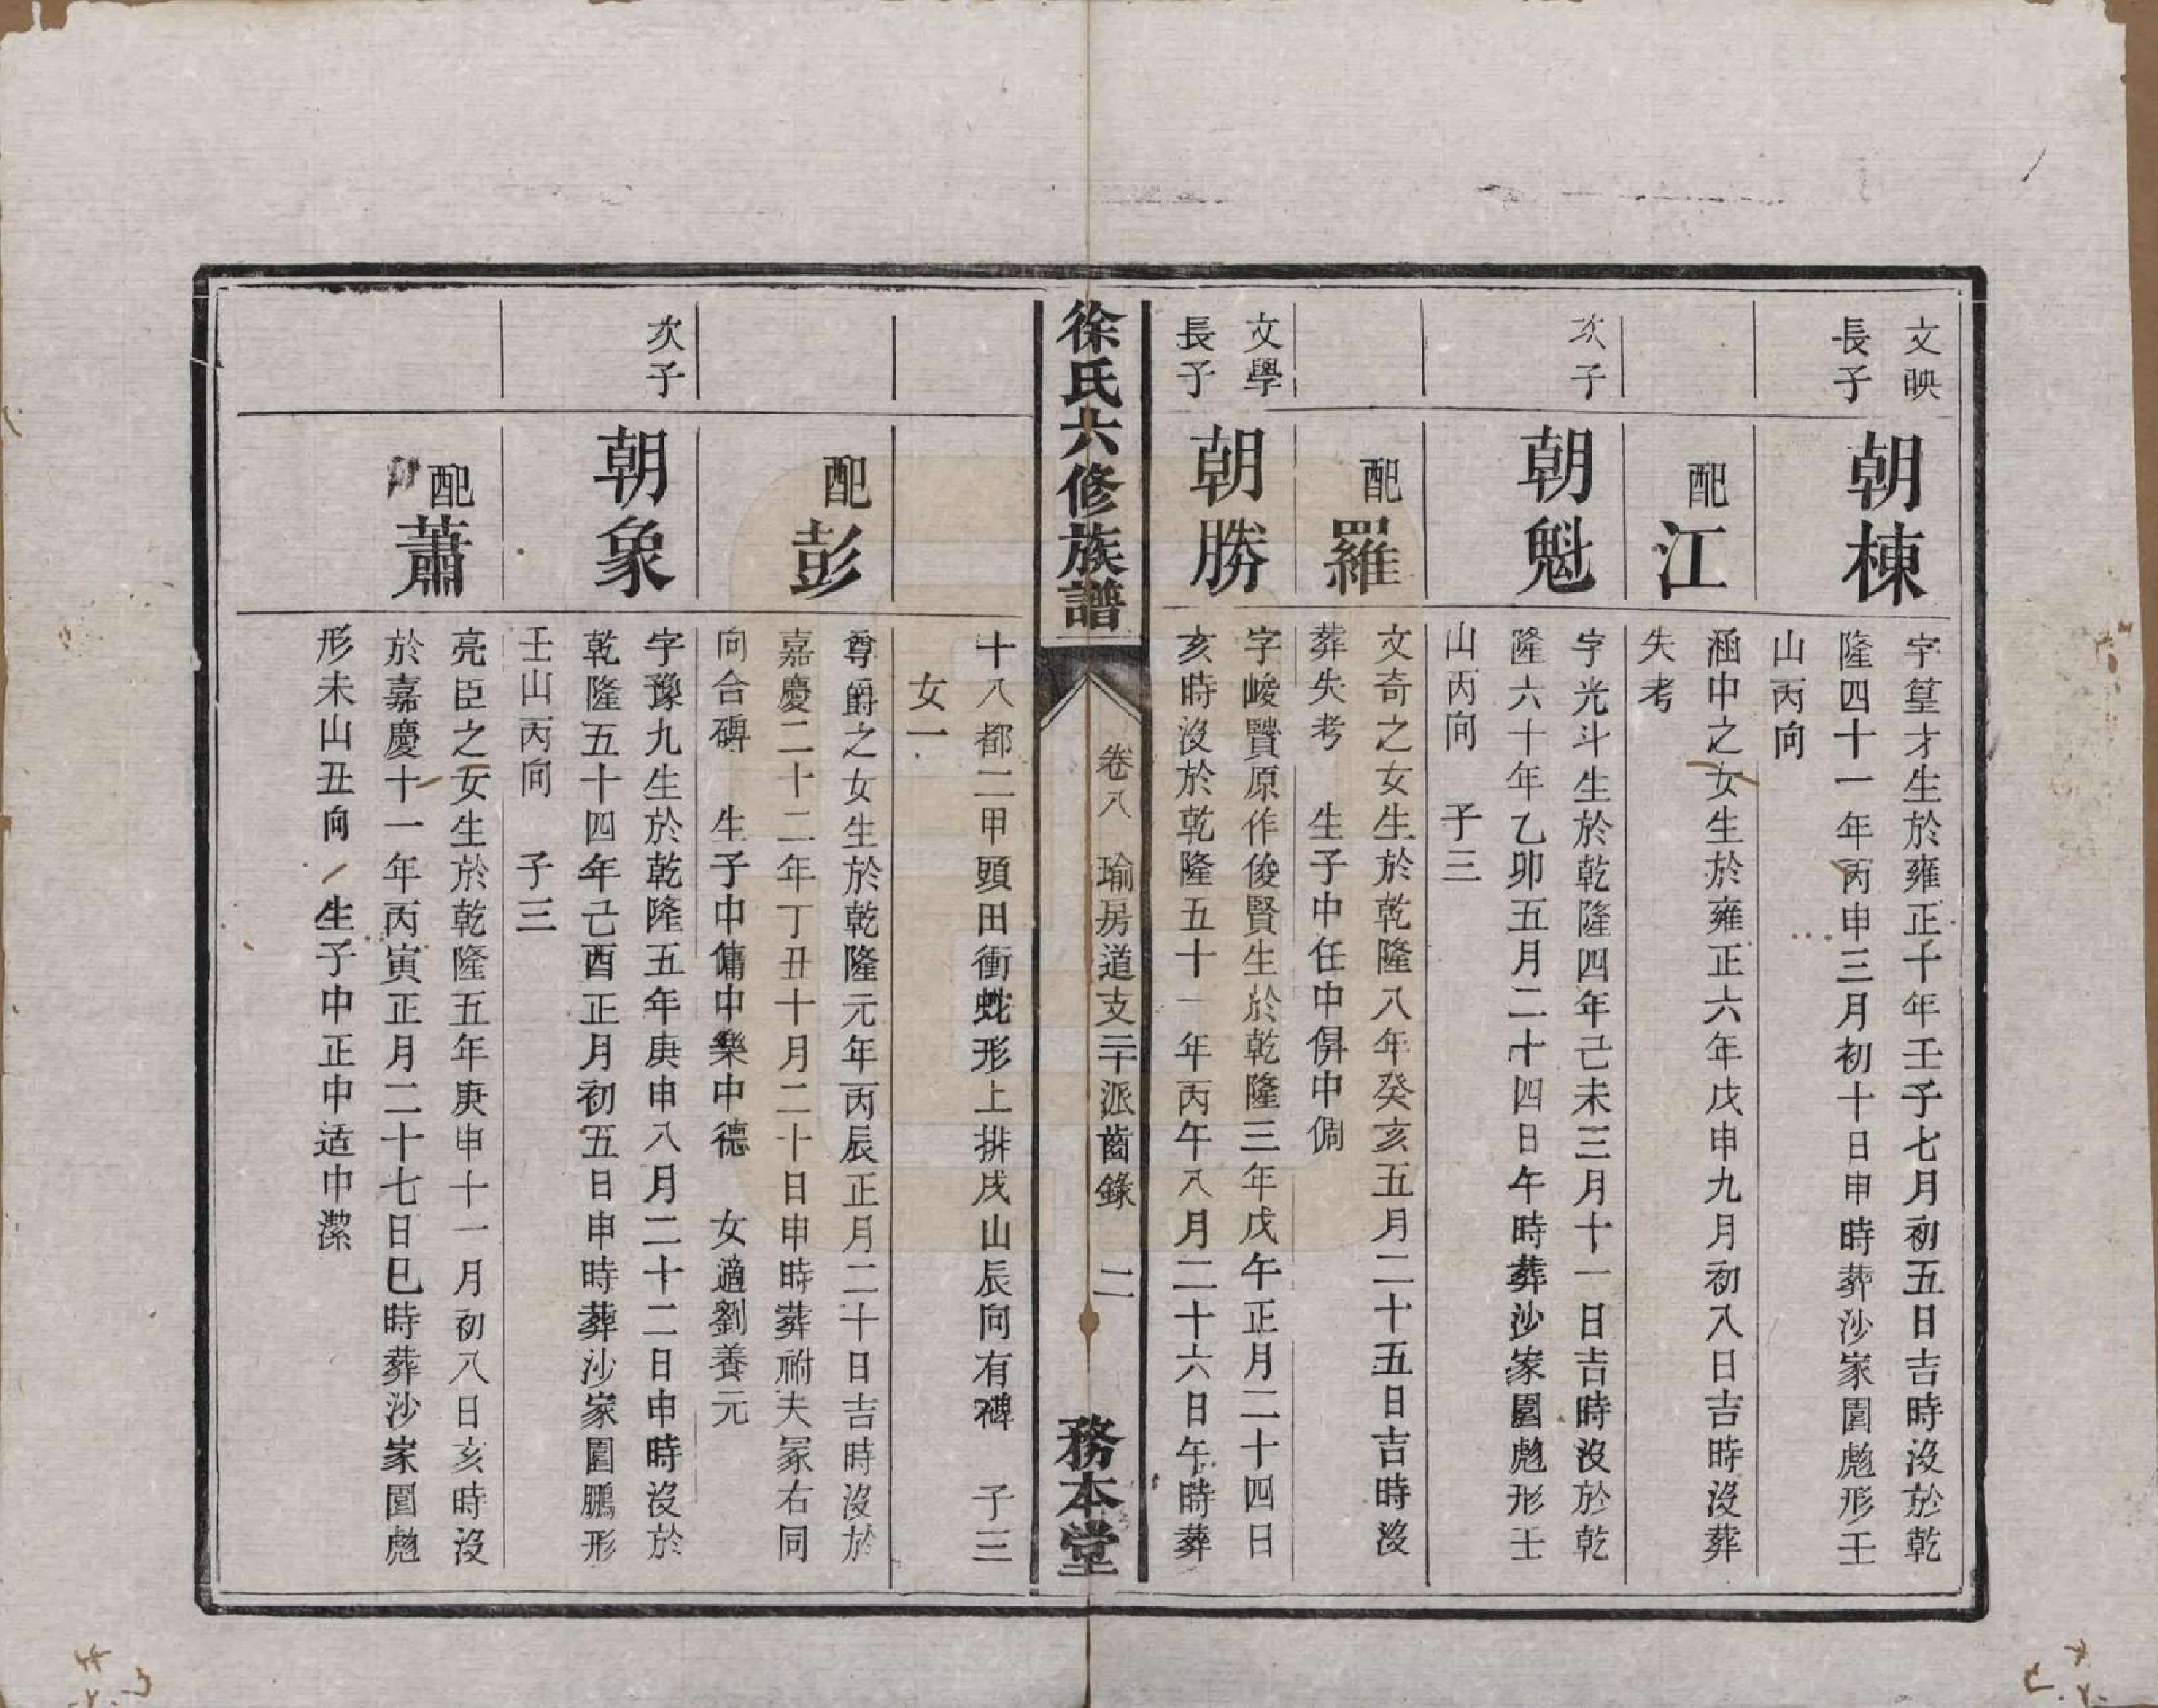 文映
長子
朝棟
字篁才生於雍正十年壬子七月初五日吉時沒於乾
隆四十一年丙申三月初十日申時葬沙家園彪形壬
山丙向
配江
涵中之女生於雍正六年戊申九月初八日吉時沒葬
失考
次子
朝魁
字光斗生於乾隆四年己未三月十一日吉時沒於乾
隆六十年乙卯五月二十四日午時葬沙家園彪形壬
山丙向 子三
配羅
文奇之女生於乾隆八年癸亥五月二十五日吉時沒
葬失考 生子中任中偋中倜
文學
長子
朝勝
字峻賢原作俊賢生於乾隆三年戊午正月二十四日
亥時沒於乾隆五十一年丙午八月二十六日午時葬
徐氏六修族譜
卷八 瑜房道支二十派齒錄 二
務本堂
十八都二甲頭田衝虵形上排戌山辰向有碑 子三
女一
配彭
尊爵之女生於乾隆元年丙辰正月二十日吉時沒於
嘉慶二十二年丁丑十月二十日申時葬祔夫冢右同
向合碑 生子中傭中樂中德 女適劉養元
次子
朝象
字豫九生於乾隆五年庚申八月二十二日申時沒於
乾隆五十四年己酉正月初五日申時葬沙家園鵬形
壬山丙向 子三
配蕭
亮臣之女生於乾隆五年庚申十一月初八日亥時沒
於嘉慶十一年丙寅正月二十七日巳時葬沙家園彪
形未山丑向 生子中正中适中潔